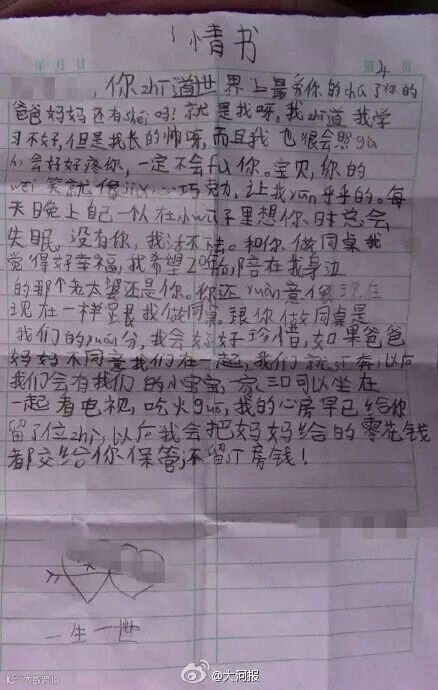 情书
年 月 日 第 4 页
,你zhī道世界上最爱你的chú了你的
爸爸妈妈还有shéi吗?就是我呀。我zhī道我学
习不好,但是我长的帅呀,而且我也很会照gù
人,会好好疼你,一定不会fù你。宝贝,你的
wēi笑就像巧克力,让我yūn乎乎的。每
天晚上自己一个人在小wū子里想你,时总会
失眠,没有你,我活不去。和你做同桌我
觉得好幸福,我希望20年后,陪在我身边
的那个老太婆还是你。你还yuàn意像现在
现在一样是跟我做同桌。跟你做同桌是
我们的yuán分,我会好好珍惜,如果爸爸
妈妈不同意我们在一起,我们就以后
我们会有我们的小宝宝,一家三口可以坐在
一起看电视,吃火guō,我的心房早已给你
留了位zhì,以后我会把妈妈给的零花钱
都交给你保管,不留一房钱!
一生一世
大成跨境
@大河报